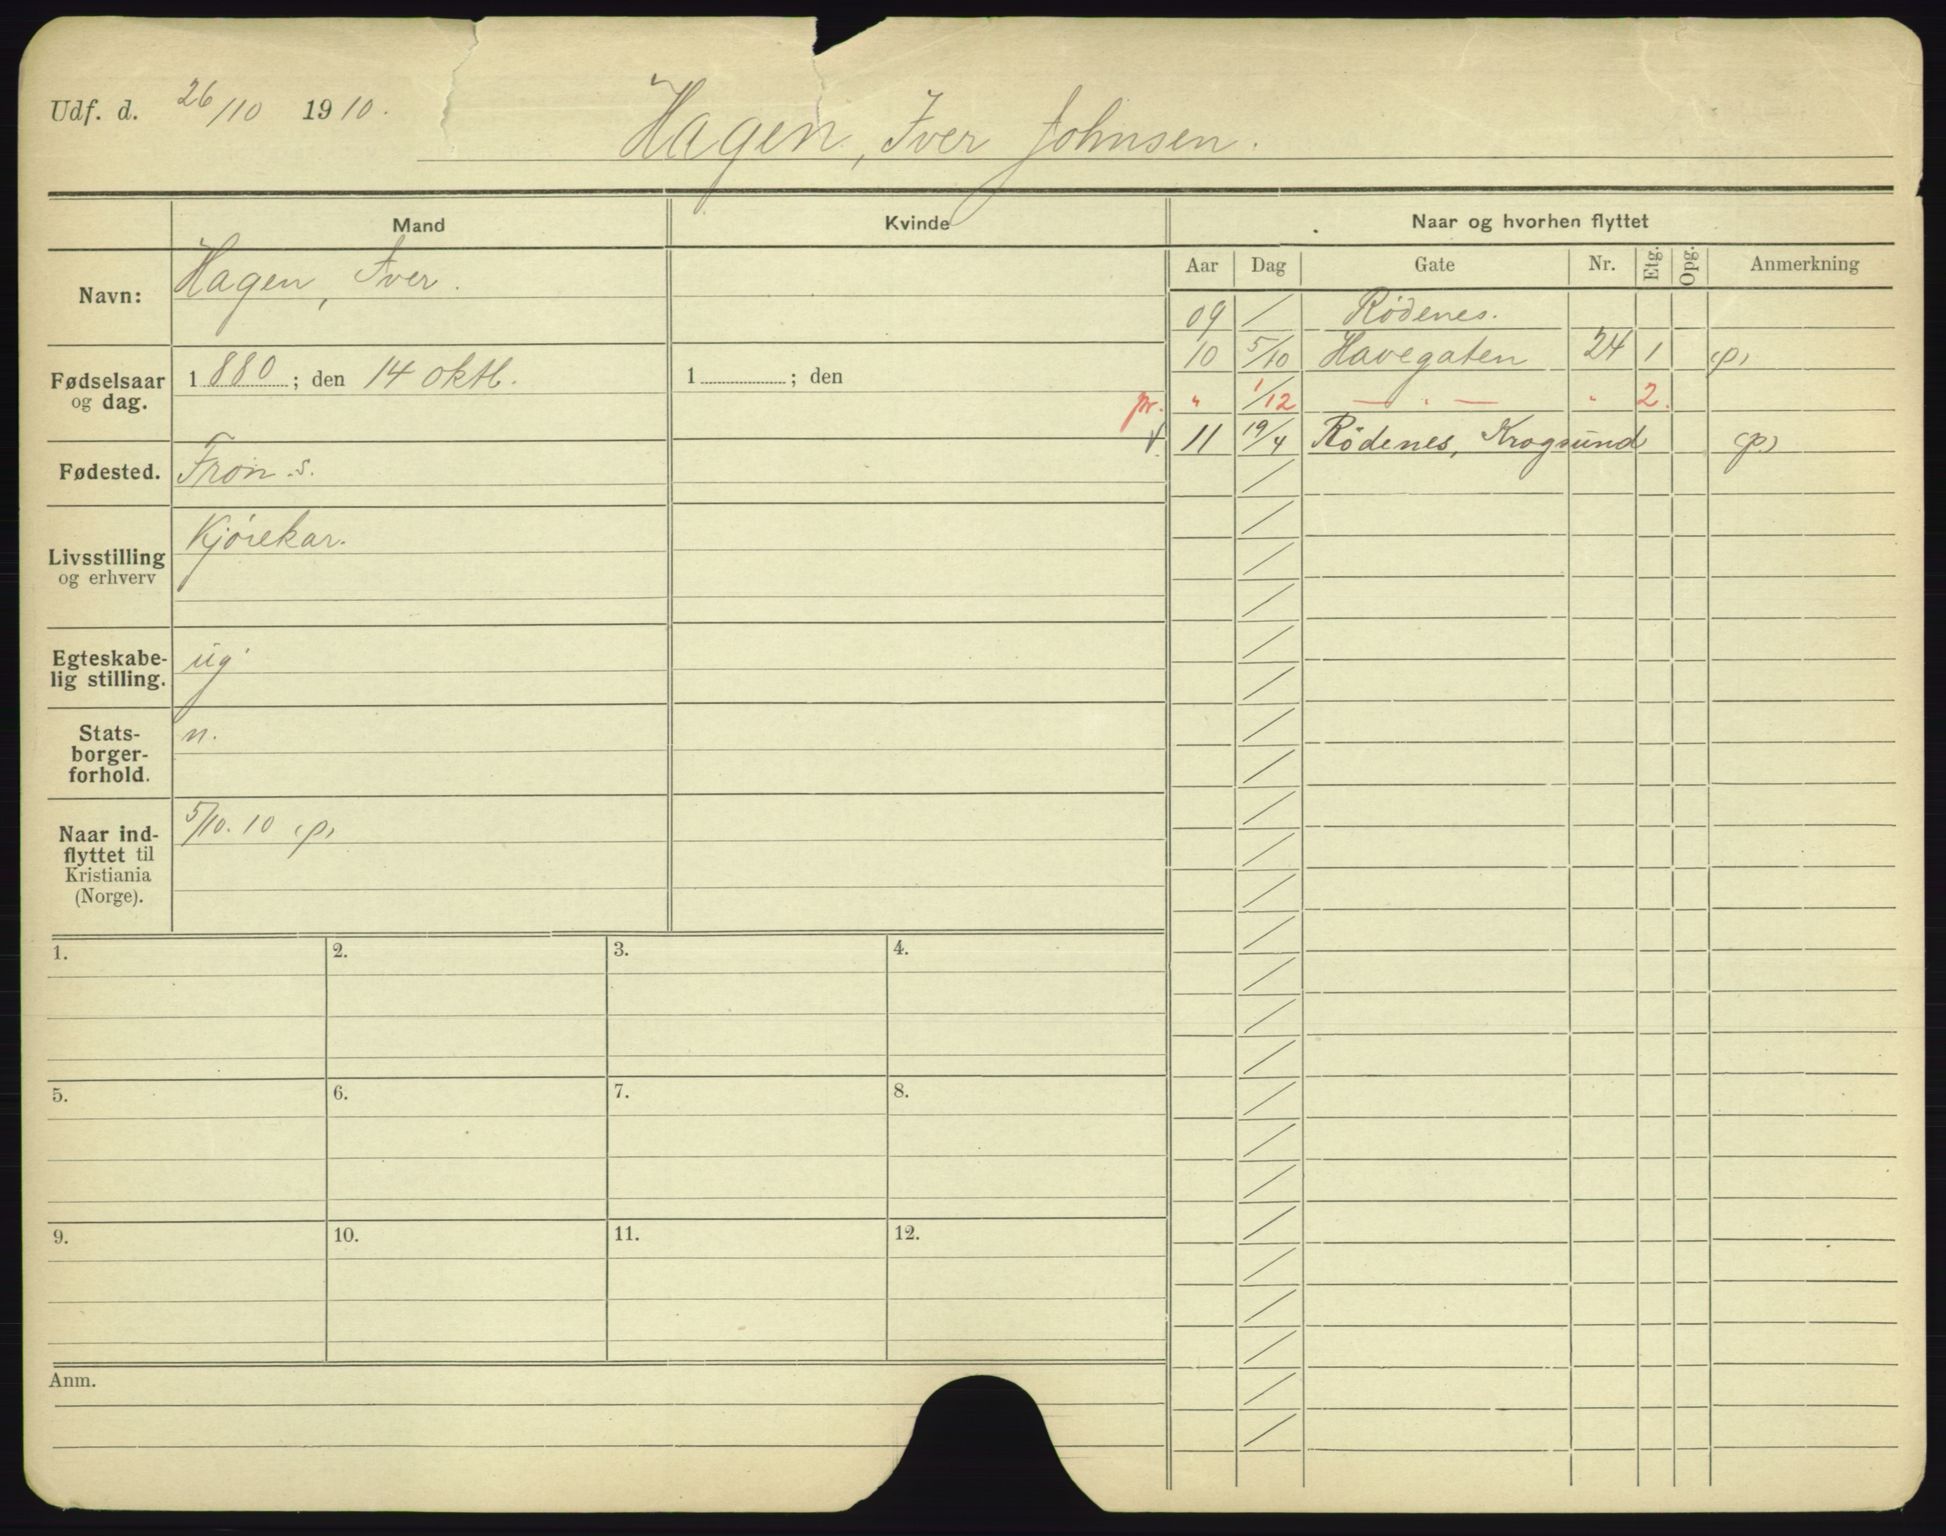 Udf. d. 26/10 1910.
Hagen, Iver Johnsen.
Mand
Kvinde
Naar og hvorhen flyttet
Navn: Hagen, Iver.
Aar Dag Gate Nr. Etg. Opg. Anmerkning
09 / Rødenes.
10 5/10 Havegaten 24 1 (p)
pr. " 1/12 — " — " 2.
v. 11 19/4 Rødenes, Krogsund (p.)
Fødselsaar og dag. 1880; den 14 oktb.
1 ; den
Fødested. Fron s.
Livsstilling og erhverv
Kjørekar.
Egteskabe-
lig stilling. ug.
Stats-
borger-
forhold. n.
Naar ind-
flyttet til
Kristiania
(Norge). 5/10.10 (p)
1. 2. 3. 4.
5. 6. 7. 8.
9. 10. 11. 12.
Anm.